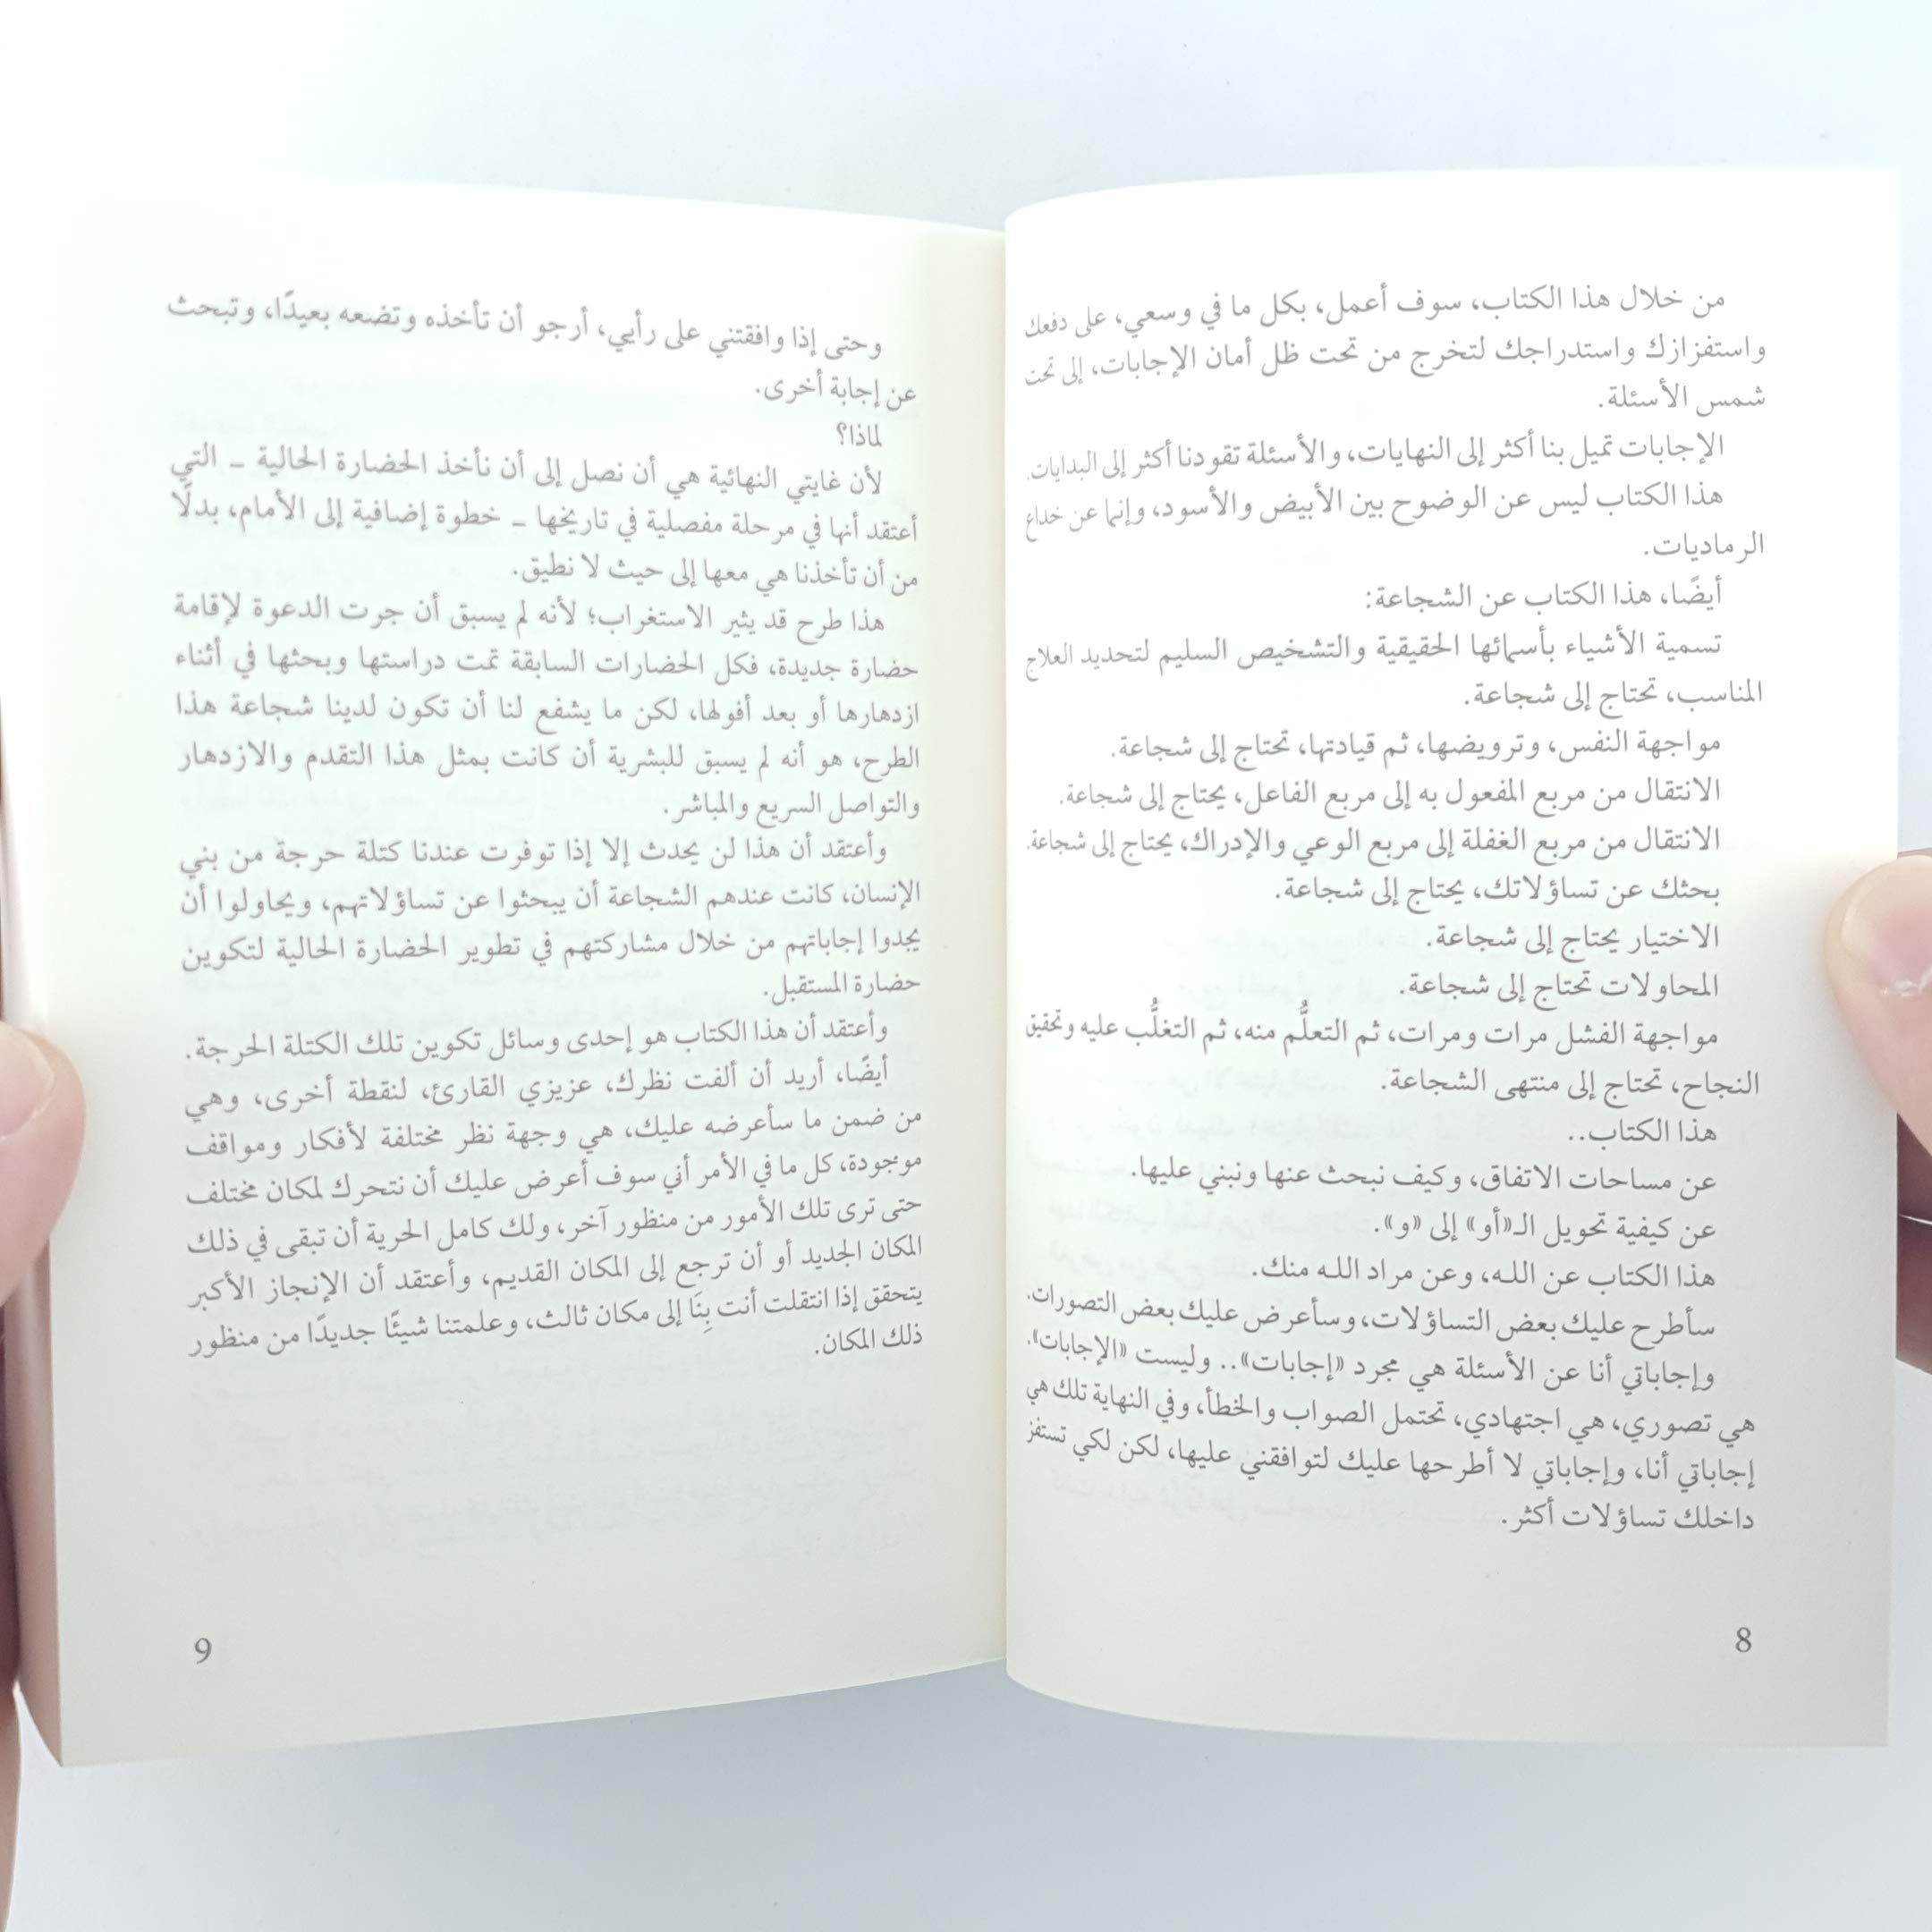 من خلال هذا الكتاب، سوف أعمل، بكل ما في وسعي، على دفعك
واستفزازك واستدراجك لتخرج من تحت ظل أمان الإجابات، إلى تحت
شمس الأسئلة.
الإجابات تميل بنا أكثر إلى النهايات، والأسئلة تقودنا أكثر إلى البدايات.
هذا الكتاب ليس عن الوضوح بين الأبيض والأسود، وإنما عن خداع
الرماديات.
أيضًا، هذا الكتاب عن الشجاعة:
تسمية الأشياء بأسمائها الحقيقية والتشخيص السليم لتحديد العلاج
المناسب، تحتاج إلى شجاعة.
مواجهة النفس، وترويضها، ثم قيادتها، تحتاج إلى شجاعة.
الانتقال من مربع المفعول به إلى مربع الفاعل، يحتاج إلى شجاعة.
الانتقال من مربع الغفلة إلى مربع الوعي والإدراك، يحتاج إلى شجاعة.
بحثك عن تساؤلاتك، يحتاج إلى شجاعة.
الاختيار يحتاج إلى شجاعة.
المحاولات تحتاج إلى شجاعة.
مواجهة الفشل مرات ومرات، ثم التعلُّم منه، ثم التغلُّب عليه وتحقيق
النجاح، تحتاج إلى منتهى الشجاعة.
هذا الكتاب..
عن مساحات الاتفاق، وكيف نبحث عنها ونبني عليها.
عن كيفية تحويل الـ«أو» إلى «و».
هذا الكتاب عن الله، وعن مراد الله منك.
سأطرح عليك بعض التساؤلات، وسأعرض عليك بعض التصورات.
وإجاباتي أنا عن الأسئلة هي مجرد «إجابات».. وليست «الإجابات».
هي تصوري، هي اجتهادي، تحتمل الصواب والخطأ، وفي النهاية تلك هي
إجاباتي أنا، وإجاباتي لا أطرحها عليك لتوافقني عليها، لكن لكي تستفز
داخلك تساؤلات أكثر.
8
وحتى إذا وافقتني على رأيي، أرجو أن تأخذه وتضعه بعيدًا، وتبحث
عن إجابة أخرى.
لماذا؟
لأن غايتي النهائية هي أن نصل إلى أن نأخذ الحضارة الحالية – التي
أعتقد أنها في مرحلة مفصلية في تاريخها – خطوة إضافية إلى الأمام، بدلًا
من أن تأخذنا هي معها إلى حيث لا نطيق.
هذا طرح قد يثير الاستغراب؛ لأنه لم يسبق أن جرت الدعوة لإقامة
حضارة جديدة، فكل الحضارات السابقة تمت دراستها وبحثها في أثناء
ازدهارها أو بعد أفولها، لكن ما يشفع لنا أن تكون لدينا شجاعة هذا
الطرح، هو أنه لم يسبق للبشرية أن كانت بمثل هذا التقدم والازدهار
والتواصل السريع والمباشر.
وأعتقد أن هذا لن يحدث إلا إذا توفرت عندنا كتلة حرجة من بني
الإنسان، كانت عندهم الشجاعة أن يبحثوا عن تساؤلاتهم، ويحاولوا أن
يجدوا إجاباتهم من خلال مشاركتهم في تطوير الحضارة الحالية لتكوين
حضارة المستقبل.
وأعتقد أن هذا الكتاب هو إحدى وسائل تكوين تلك الكتلة الحرجة.
أيضًا، أريد أن ألفت نظرك، عزيزي القارئ، لنقطة أخرى، وهي
من ضمن ما سأعرضه عليك، هي وجهة نظر مختلفة لأفكار ومواقف
موجودة، كل ما في الأمر أني سوف أعرض عليك أن نتحرك لمكان مختلف
حتى ترى تلك الأمور من منظور آخر، ولك كامل الحرية أن تبقى في ذلك
المكان الجديد أو أن ترجع إلى المكان القديم، وأعتقد أن الإنجاز الأكبر
يتحقق إذا انتقلت أنت بِنَا إلى مكان ثالث، وعلمتنا شيئًا جديدًا من منظور
ذلك المكان.
9